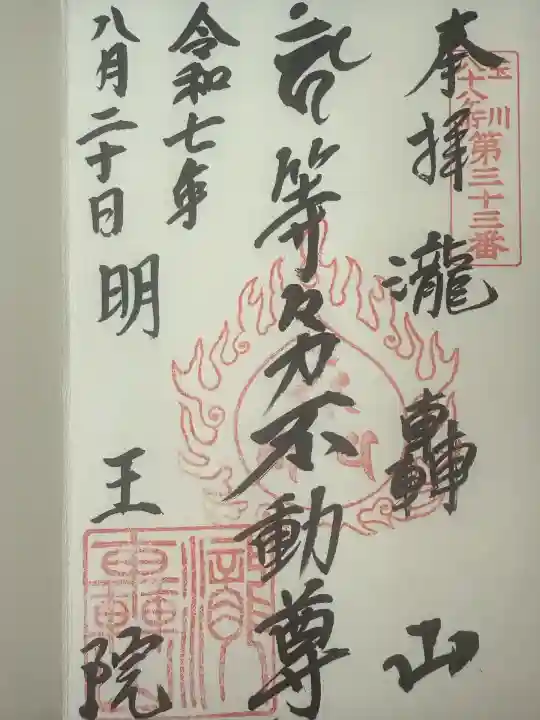 玉川
八十八ヶ所第三十三番
奉拝 瀧轟山
等々力不動尊
令和七年
八月二十日 明王院